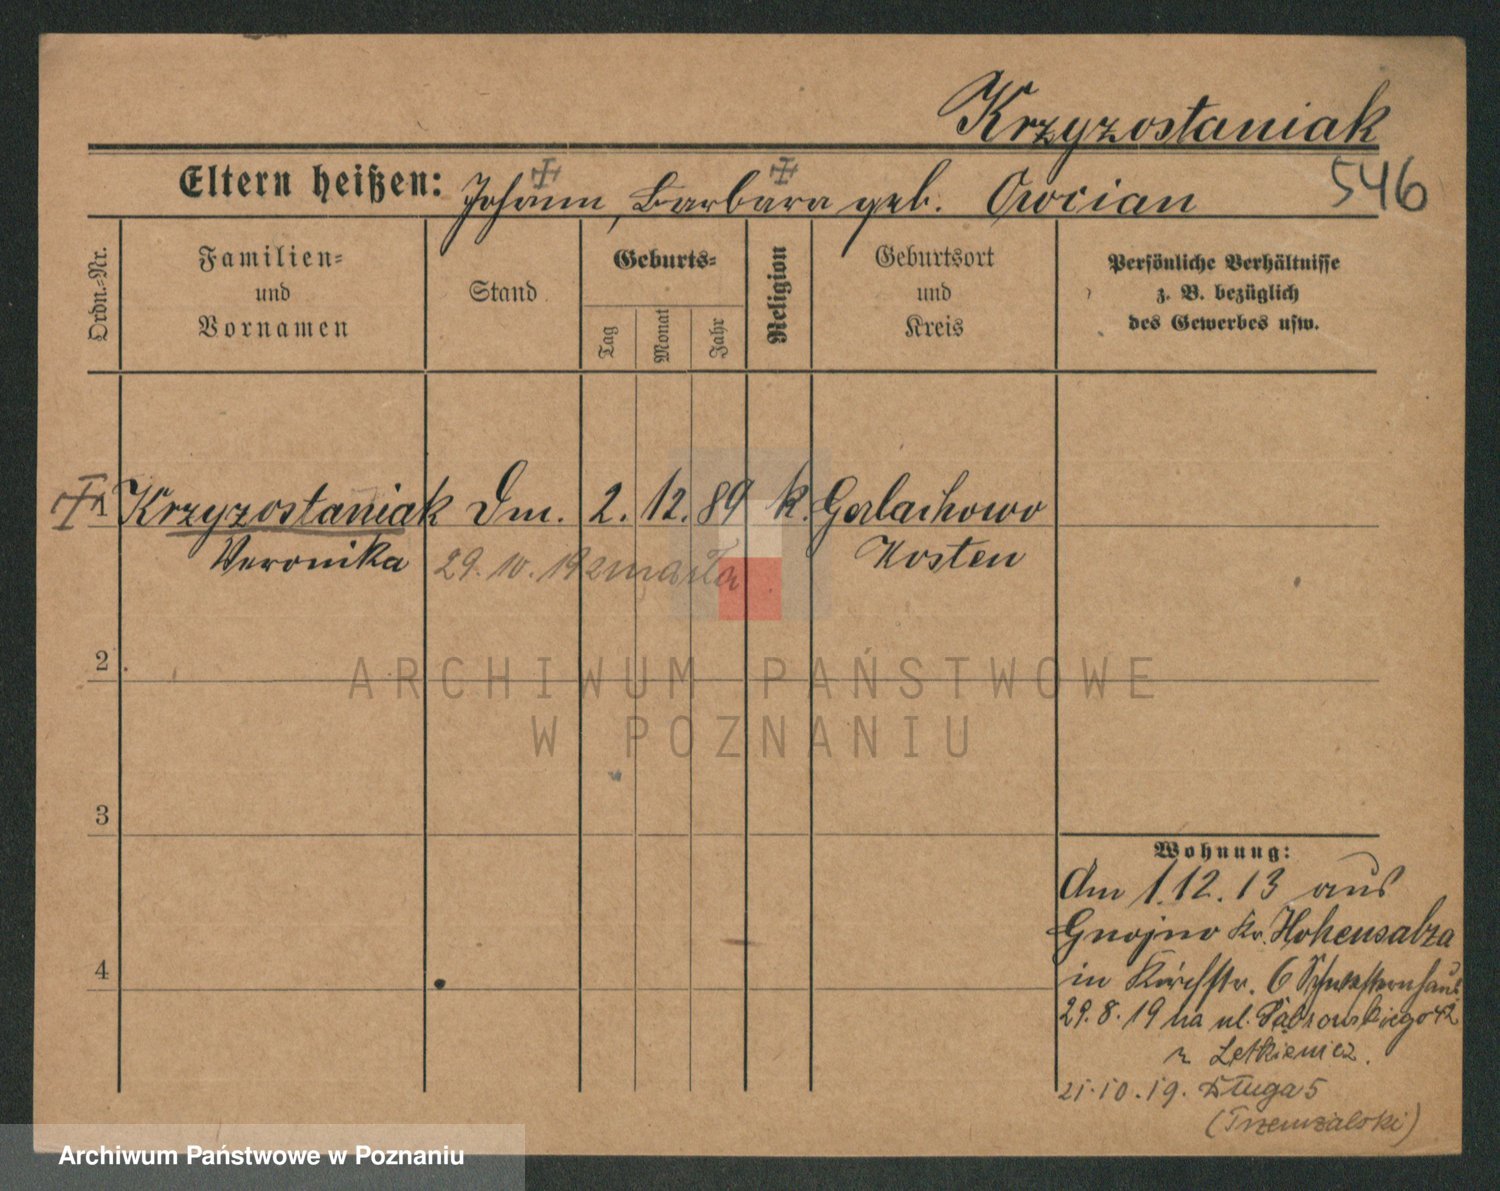 Krzyzostaniak
546
Eltern heißen: Johann, Barbara geb. Owocian
Ordn.-Nr.
Familien-
und
Vornamen
Stand
Geburts-
Tag
Monat
Jahr
Religion
Geburtsort
und
Kreis
Persönliche Verhältnisse
z. B. bezüglich
des Gewerbes usw.
1 Krzyzostaniak Dm. 2. 12. 89 k. Gorlachowo
Veronika Kosten
29. 10. 19 zmarła
2
3
4
Wohnung:
Am 1.12.13 aus
Gnojno Kr. Hohensalza
in Kirchstr. 6 Schwesternhaus
29.8.19 na ul. Dąbrowskiego 42
Letkiewicz.
21.10.19. Długa 5
ARCHIWUM PAŃSTWOWE
W POZNANIU
Archiwum Państwowe w Poznaniu